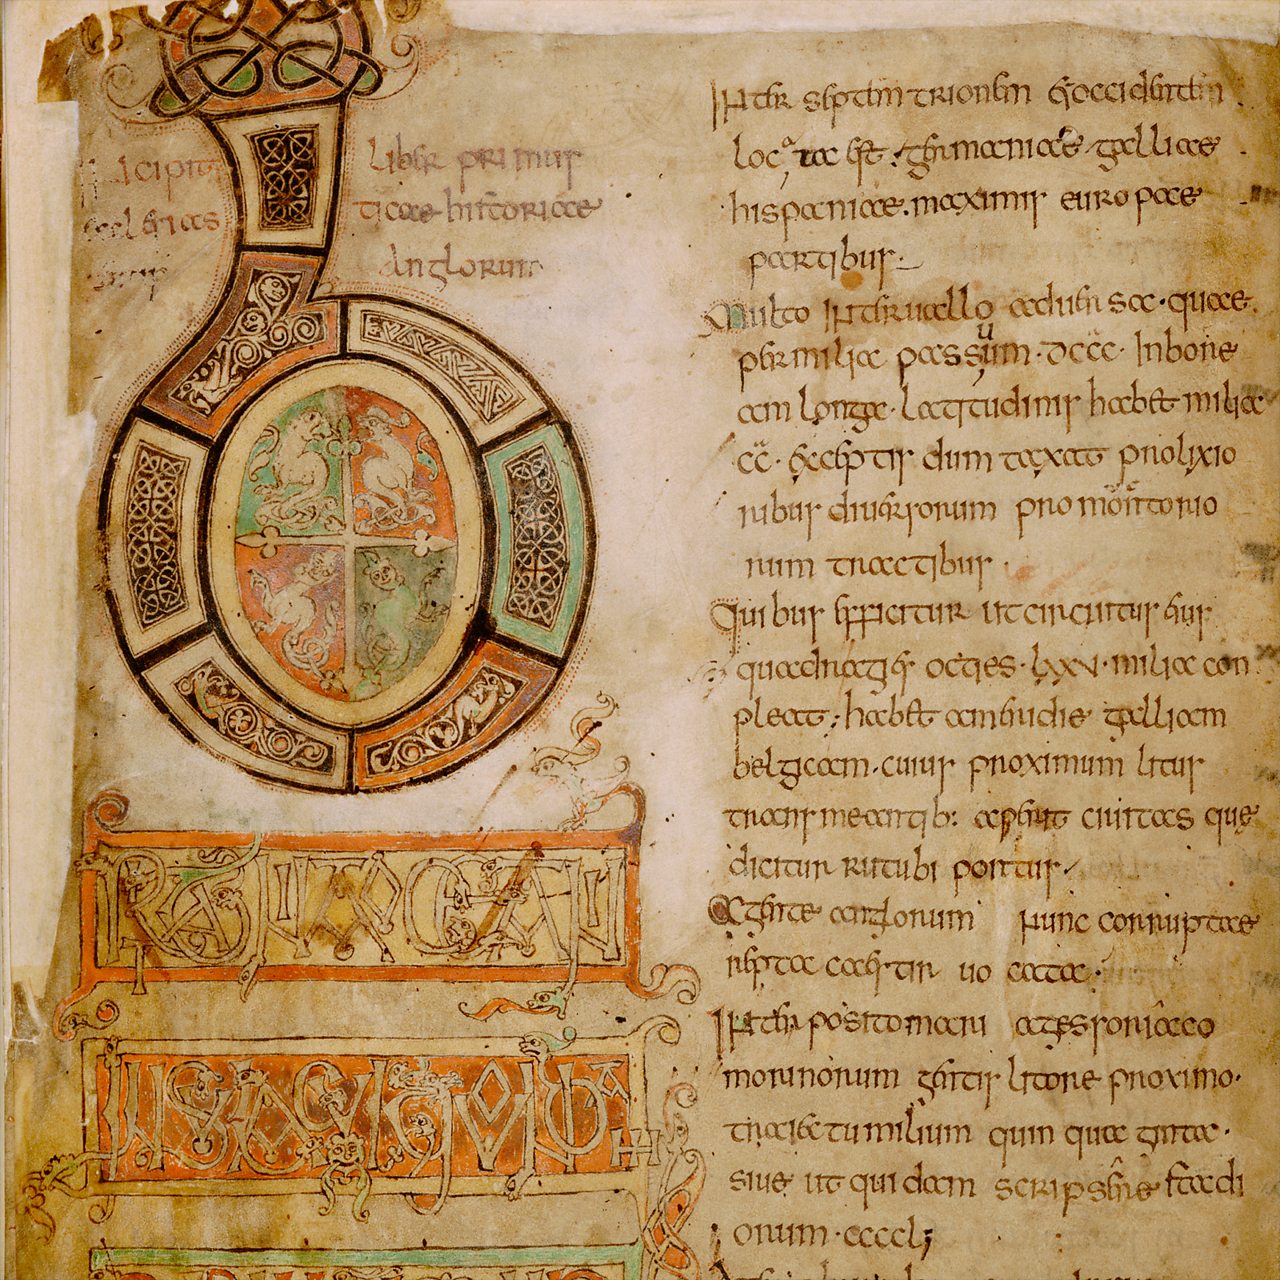 Incipit Liber primus
eclesias ticae historiae
gentis Anglorum
INter septemtrionem & occidentem
locata est. germaniae. galliae
hispaniae. maximis europae
partibus.
Multo INteruallo aduersae. quae
per milia passuum. dccc. In bore
am longa. Latitudinis habet milia
cc. exceptis dum taxat prolixio
ribus diuersorum promontorio
rum tractibus
Quibus efficitur ut circuitus eius
quadragies octies. lxxv. milia con
pleat; habet a meridie galliam
belgicam. cuius proximum litus
transmeantib: aperit ciuitas que
dicitur rutubi portus
A gente anglorum nunc corruptae
reptacaestir uocata.
INterposito mari a gessoriaco
morinorum gentis litore proximo.
traiectu milium quinquaginta.
siue ut quidam scripsere stadi
orum. ccccl;